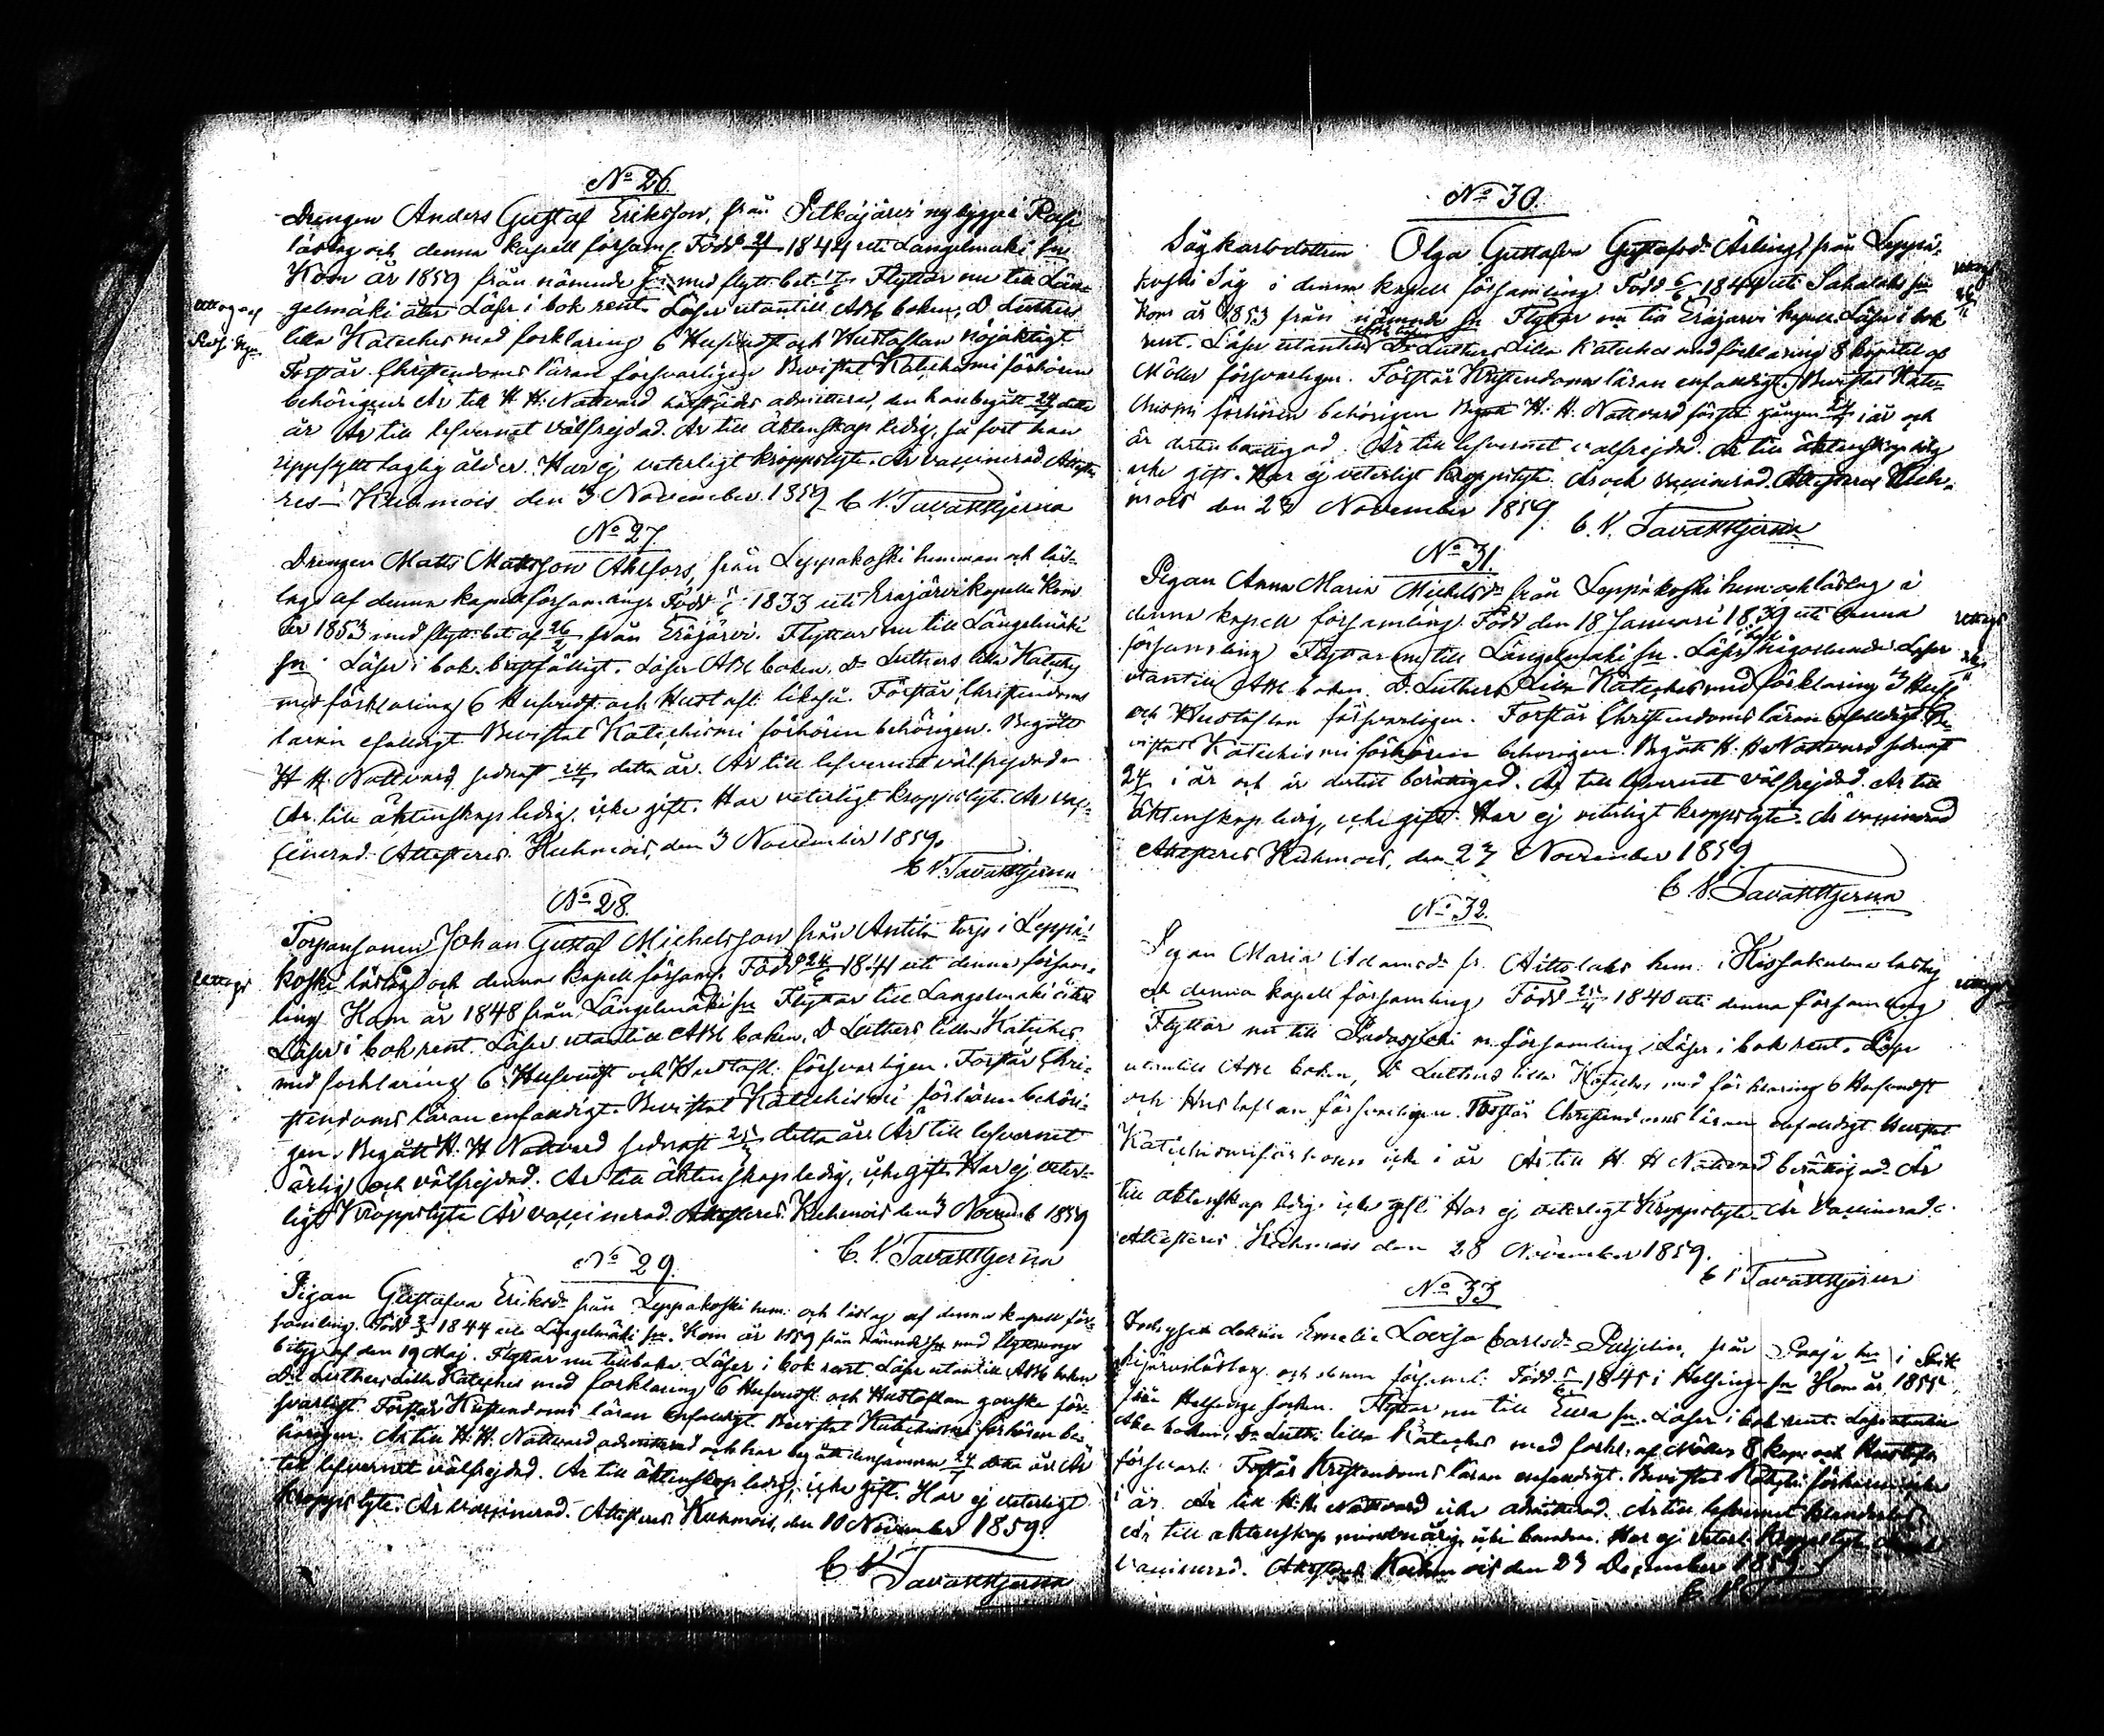 No 26.
Drengen Anders Gustaf Eriksson, från Pitkäjärvi nybygge i Pasi
läslag och denna kapell församl. Född 21/ 1844 uti Längelmäki sn
Kom år 1859 från nämnde sn med flytt. bet. Flyttar nu till Län-
gelmäki åter Läser i bok rent. Läser utantill ABC boken, D Luthers
lilla Kateches med förklaring 6 Hufvudst och Hustaflan nöjaktigt.
Uttogs
Förstår Christendoms läran försvarligen Bevistat Katechismi förhören
behörigen. Är till H. H. Nattvard admitterad, den han begått 24/7 detta
år Är till lefvernet välfrejdad. Är till äktenskap ledig, så fort han
uppfyllt laglig ålder. Har ej veterligt kroppslyte. Är vaccinerad Atteste-
res Kuhmois den 3 November 1859 C. N. Tavaststjerna
No 27.
Drengen Matts Mattsson Ahlfors, från Leppäkoski hemman och läs-
lag af denna kapellförsamling. Född 1833 uti Eräjärvi kapell. Kom
år 1853 med flytt. bet. af 26/2 från Eräjärvi. Flyttar nu till Längelmäki
sn. Läser i bok. Läser ABC boken, Dr Luthers lilla Kateches
med förklaring 6 Hufvudst. och Hustafl. likaså. Förstår Christendoms
läran Bevistat Katechismi förhören behörigen. Begått
H. H. Nattvard sednast 24/7 detta år. Är till lefvernet välfrejdad
Är till äktenskap ledig, icke gift. Har veterligt kroppslyte. Är vac-
cinerad. Attesteres. Kuhmois, den 3 November 1859.
C. N. Tavaststjerna
No 28.
Torparsonen Johan Gustaf Michelsson från Antila torp i Leppä-
Uttogs
koski läslag och denna kapell församl. Född 24/6 1841 uti denna försam-
ling Kom år 1848 från Längelmäki sn Flyttar till Längelmäki åter
Läser i bok rent. Läser utantill ABC boken, D Luthers lilla Kateches
med förklaring 6 Hufvudst och Hustafl. försvarligen. Förstår Chri-
stendoms läran enfaldigt. Bevistat Katechismi förhören behöri-
gen. Begått H. H Nattvard sednast 25/ detta år. Är till lefvernet
ärlig och välfrejdad. Är till äktenskap ledig, icke gift. Har ej veter-
ligt Kroppslyte Är vaccinerad. Attesteres. Kuhmois den 3 Novemb 1859
C. N. Tavaststjerna
No 29.
Pigan Gustafva Eriksdr från Leppäkoski hem. och läslag af denna kapell för-
samling. Född 1844 uti Längelmäki sn. Kom år 1859 från nämnde sn med flyttnings
betyg af den 19 Maj. Flyttar nu tillbaka. Läser i bok rent. Läser utantill ABC boken
Dr Luthers lilla Kateches med förklaring 6 Hufvudst. och Hustaflan ganska för-
svarligt. Förstår Kristendoms läran enfaldigt. Bevistat Katechismi förhören be-
hörigen. Är till H. H. Nattvard admitterad och har begått densamma 24/7 detta år. Är
till lefvernet välfrejdad. Är till äktenskap ledig, icke gift. Har ej veterligt
Kroppslyte. Är vaccinerad. Attesteres Kuhmois, den 10 November 1859.
C N Tavaststjerna
No 30.
Sågkarlsdottren Olga Gustafva Gustafsdr Ärling, från Leppä-
koski Såg i denna kapell församling. Född 6/6 1844 uti Sahalahti sn
Uttogs
Kom år 1853 från nämnde sn Flyttar nu till Eräjärvi kapell. Läser i bok
rent. Läser utantill ABC boken Dr Luthers lilla Kateches med förklaring 8 kapitel af
Möller försvarligen. Förstår Kristendoms läran enfaldigt. Bevistat Kate-
chismi förhören behörigen Begått H. H. Nattvard första gången 24/7 i år och
är dertill berättigad. Är till lefvernet välfrejdad. Är till äktenskap ledig
icke gift. Har ej veterligt kroppslyte. Är och vaccinerad. Attesteres Kuh-
mois den 23 November 1859.
C. N. Tavaststjerna
No 31.
Pigan Anna Maria Michelsdr från Leppäkoski hem. och läslag i
denna kapell församling. Född den 18 Januari 1839 uti denna
Uttogs
församling Flyttar nu till Längelmäki sn. Läser i bok Läser
utantill ABC boken. D. Luthers lilla Kateches med förklaring
och Hustaflan försvarligen. Förstår Christendoms läran enfaldigt. Be-
vistat Katechismi förhören behörigen. Begått H. H. Nattvard sednast
24/7 i år och är dertill berättigad. Är till lefvernet välfrejdad. Är till
äktenskap ledig, icke gift. Har ej veterligt kroppslyte. Är vaccinerad
Attesteres Kuhmois, den 27 November 1859
C. N. Tavaststjerna
No 32.
Pigan Maria Adamsdr fr. Aittolahti hem. i Kissakulma läslag
Uttogs
och denna kapell församling. Född 25/4 1840 uti denna församling
Flyttar nu till Padasjoki m. församling. Läser i bok rent. Läser
utantill ABC boken, D Luthers lilla Kateches med förklaring 6 Hufvudst
och Hustaflan försvarligen. Förstår Christendoms läran enfaldigt Bevistat
Katechismi förhören icke i år Är till H. H Nattvard berättigad Är
till äktenskap ledig. icke gift. Har ej veterligt Kroppslyte. Är Vaccinerad.
Attesteres Kuhmois den 28 November 1859.
C N Tavaststjerna
No 33
dottren Emelie Lovisa Carlsdr från i
läslag och denna församl. Född 1845 i Helsinge sn Kom år 1855
från Helsinge socken. Flyttar nu till Eura sn. Läser i bok rent. Läser utantill
Abc boken, Dr Luth. lilla Kateches med förkl. af Möller 8 kap. och Hustafl.
försvarl. Förstår Kristendoms läran enfaldigt. Bevistat Katech. förhören icke
i år. Är till H. H. Nattvard icke admitterad. Är till lefvernet klanderlös.
Är till äktenskap minderårig, icke bunden. Har ej veterl. kroppslyte
Vaccinerad. Attesteres Kuhmois den 23 December 1859.
C. N.